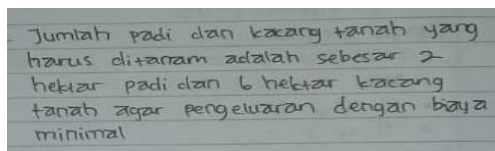 Jumlah padi dan kacang tanah yang
harus ditanam adalah sebesar 2
hektar padi dan 6 hektar kacang
tanah agar pengeluaran dengan biaya
minimal